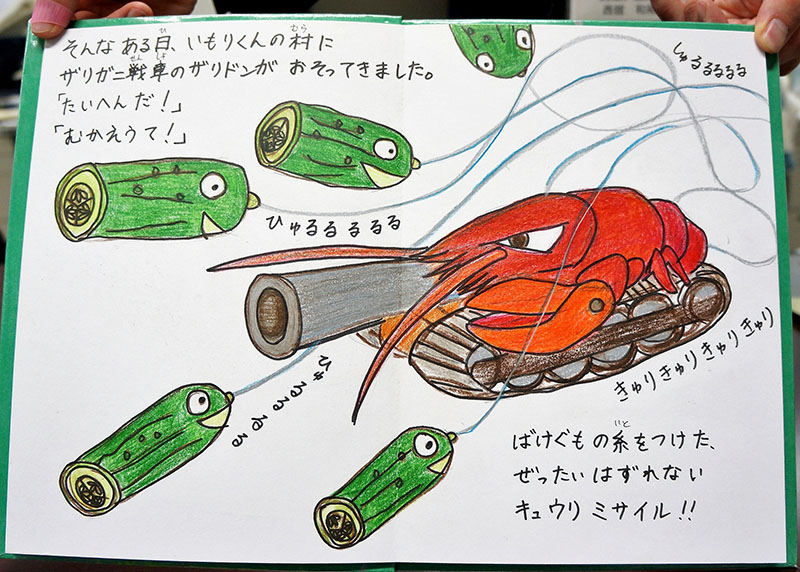 そんな ある日、いもりくんの村に
ザリガニ戦車のザリドンが おそってきました。
「たいへんだ!」
「むかえうて!」
しゅるるるるる
ひゅるるるるる
ひゅるるるる
きゅりきゅりきゅりきゅり
ばけぐもの糸をつけた、
ぜったいはずれない
キュウリミサイル!!